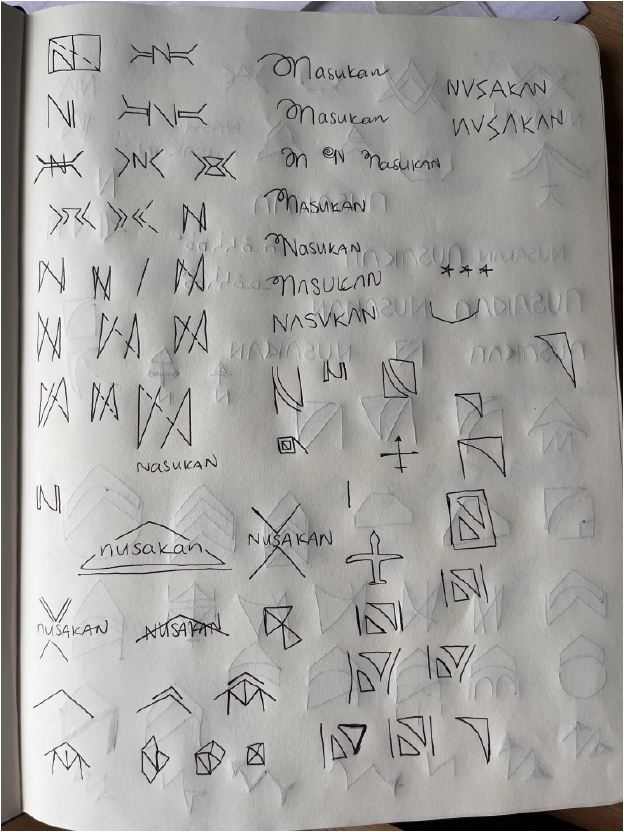 N
N
Masukan
NUSAKAN
N
N
Masukan
NUSAKAN
N
M N Nasukan
MASUKAN
NASUKAN
NASUKAN
NASUKAN
***
N
NASUKAN
N
nusakan
NUSAKAN
NUSAKAN
NUSAKAN